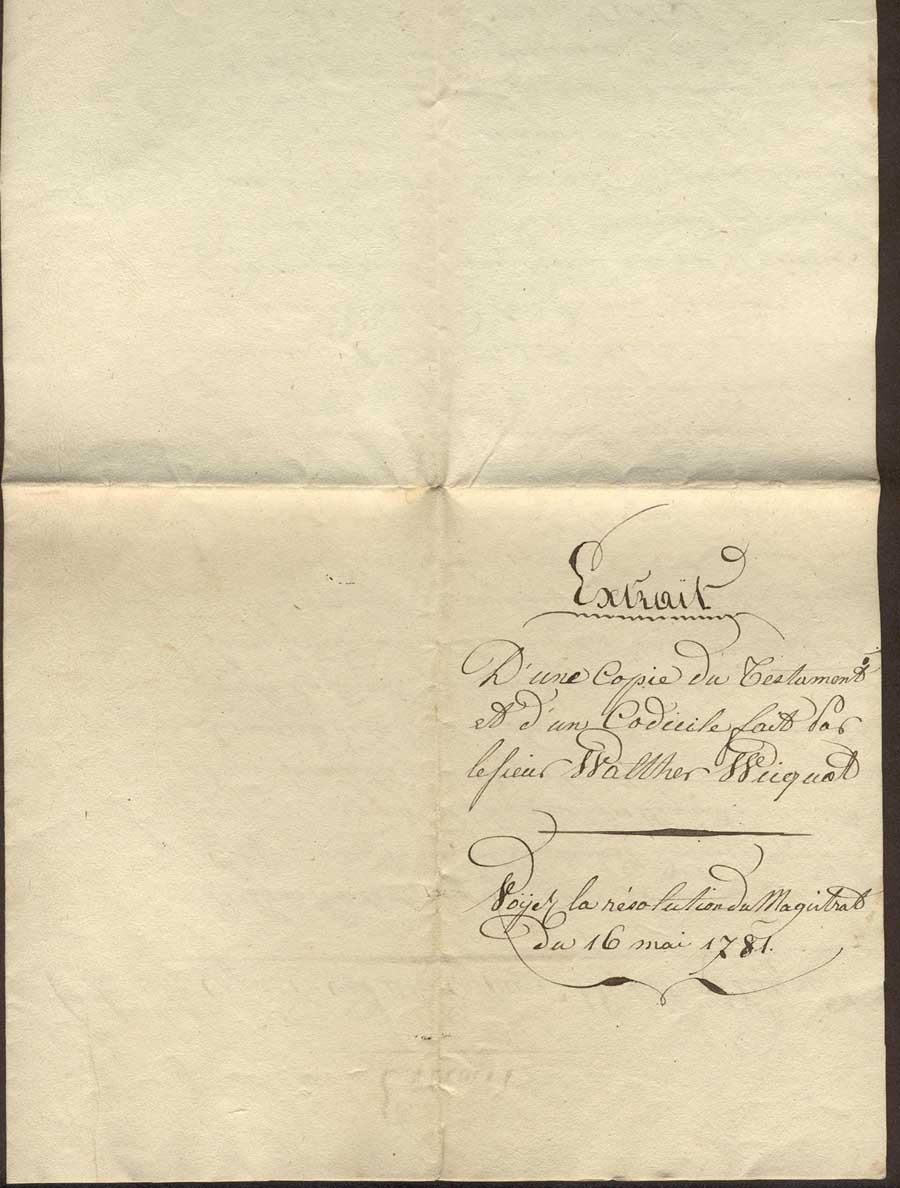 Extrait
D'une Copie du Testament
et d'un Codicile fait par
le sieur Walther Wicquot
Voÿez la résolution du Magistrat
du 16 mai 1781.